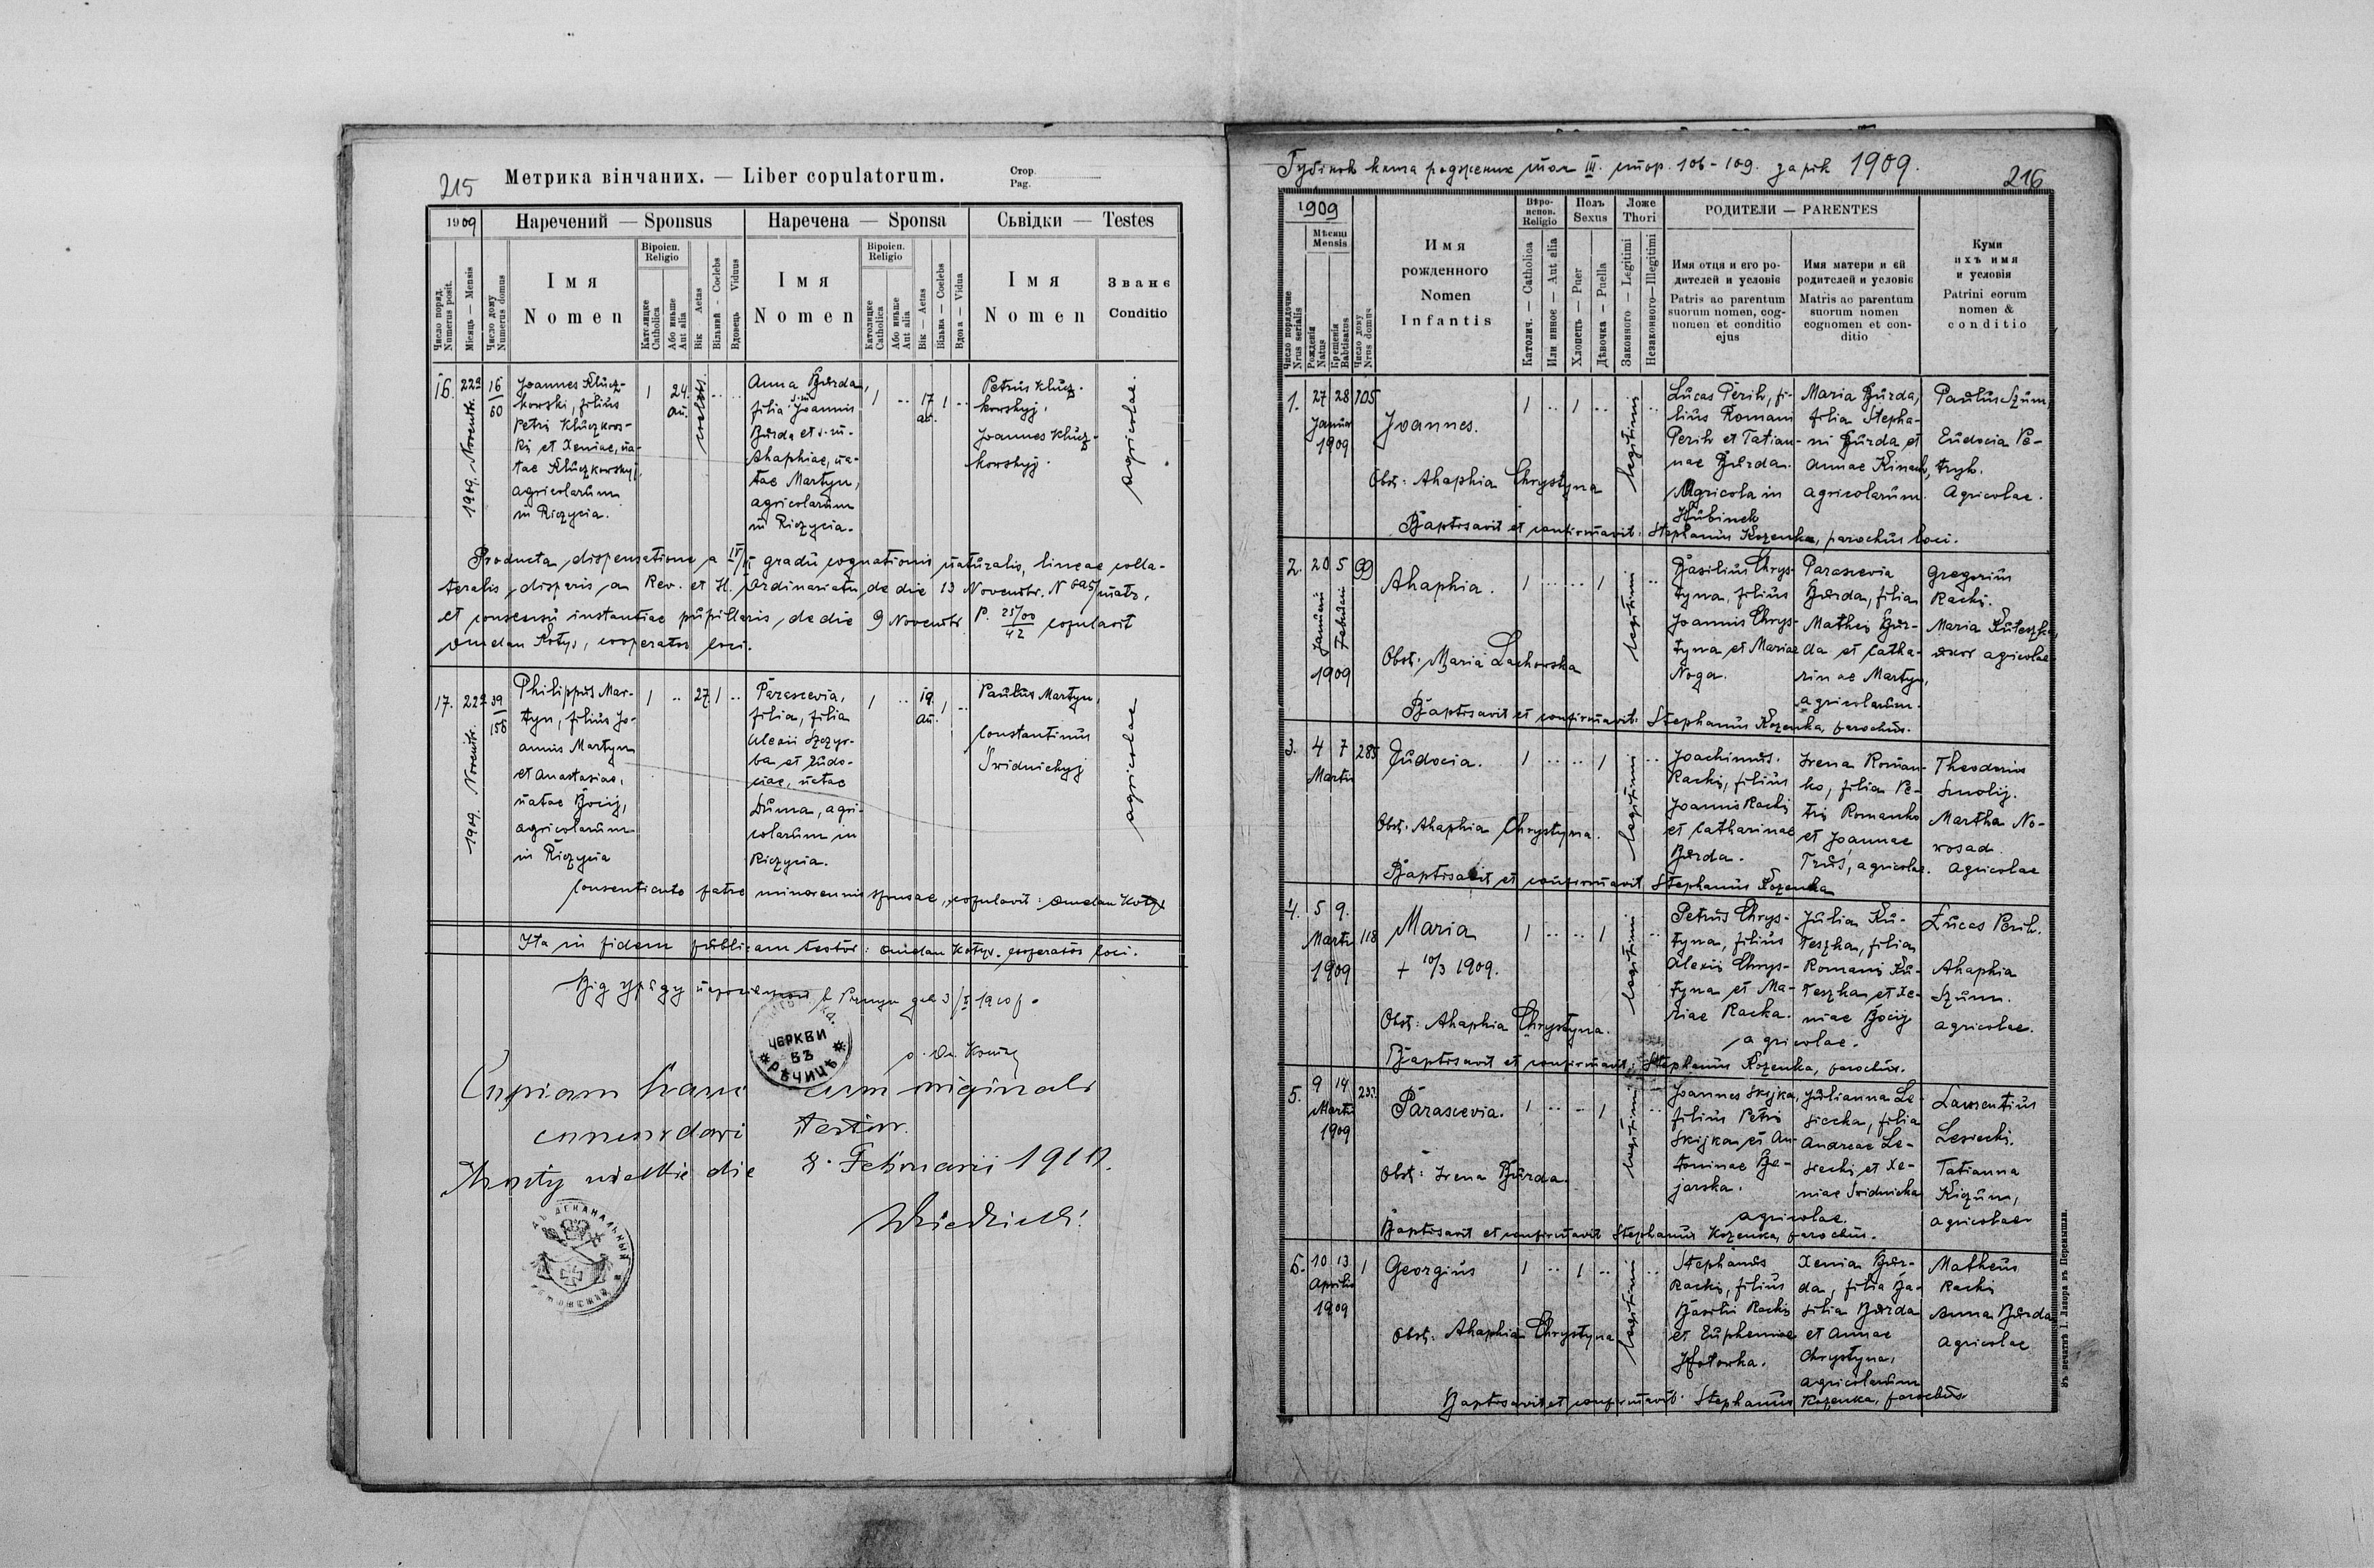 215
Метрика вінчаних. — Liber copulatorum.
Стор.
Pag.
1909
Наречений — Sponsus
Наречена — Sponsa
Сьвідки — Testes
Число поряд.
Numerus posit.
Місяць — Mensis
Число дому
Numerus domus
Імя
Nomen
Віроісп.
Religio
Католицке
Catholica
Або иньше
Aut alia
Вік — Aetas
Вільний - Coelebs
Вдовець Viduus
Імя
Nomen
Віроісп.
Religio
Католицке
Catholica
Або иньше
Aut alia
Вік — Aetas
Вільна — Coelebs
Вдова — Vidua
Імя
Nomen
Званє
Conditio
16. 22a Novembr. 1909. 16/60
Joannes Klucz-
kowski, filius
Petri Kluczkow-
ski et Xeniae, na-
tae Kluczkowskyj,
agricolarum
in Riczycia.
1 24 an. coelebs
Anna Burda,
filia Joannis
Burda et
Ahaphiae, na-
tae Martyn,
agricolarum
in Riczycia.
1 .. 17 an. 1 ..
Petrus Klucz-
kowskyj.
Joannes Klucz-
kowskyj.
agricolae.
Producta dispensatione a gradu cognationis naturalis, lineae colla-
teralis, disparis, an Rev. et Il. Ordinariatu de die 13 Novembr.
et consensu instantiae pupillaris, de die 9 Novembr. P. 25/00/42 copulavit
Omelan Kotys, cooperator loci.
17. 22a Novembr. 1909. 39/158
Philippus Mar-
tyn, filius Jo-
annis Martyn
et Anastasiae,
natae Bocij,
agricolarum
in Riczycia
1 .. 27 1 ..
Parascevia,
filia, filia
Alexii Szczyr-
ba et Eudo-
ciae, natae
Duma, agri-
colarum in
Riczycia.
1 .. 19 an. 1 ..
Paulus Martyn,
Constantinus
Świdnickyj
agricolae
Consentiente patre minorennis sponsae, copulavit: Omelan Kotys
Ita in fidem publicam testor: Omelan Kotys. cooperator loci.
Від уряду
ЦЕРКВИ
ВЪ
РѢЧИЦѢ
Copiam hanc cum originali
concordari testor.
Mosty wielkie die 8. Februarii 1910.
ДЕКАНАЛЬНЫЙ
1909.
216
1909
Мѣсяш
Mensis
Число порядочне
Nrus serialis
Рожденія
Natus
Крещенія
Babtisatus
Число дому
Nrus domus
Имя
рожденного
Nomen
Infantis
Вѣро-
испов.
Religio
Католич. — Catholica
Или инное — Aut alia
Полъ
Sexus
Хлопець — Puer
Дѣвочка — Puella
Ложе
Thori
Законного — Legitimi
Незаконного—Illegitimi
РОДИТЕЛИ — PARENTES
Имя отця и его ро-
дителей и условіє
Patris ac parentum
suorum nomen, cog-
nomen et conditio
ejus
Имя матери и єй
родителей и условіє
Matris ac parentum
suorum nomen
cognomen et con-
ditio
Куми
ихъ имя
и условія
Patrini eorum
nomen &
conditio
1. 27 28 Januar 1909 105
Joannes.
1 .. 1 .. legitimi ..
Lucas Perih, fi-
lius Romani
Perih et Tatian-
nae Burda.
Agricola in
Hubinek
Maria Burda,
filia Stepha-
ni Burda et
Annae Kinach,
agricolarum.
Paulus Szum,
Eudocia Pe-
tryk.
Agricolae.
Obst: Ahaphia Chrystyna
Baptisavit et confirmavit: Stephanus Kozenka, parochus loci.
2. 20 Januarii 5 Februarii 1909 99
Ahaphia.
1 .. .. 1 legitimi ..
Basilius Chrys-
tyna, filius
Joannis Chrys-
tyna et Mariae
Noga.
Parascevia
Burda, filia
Mathei Bur-
da et Catha-
rinae Martyn,
agricolarum.
Gregorius
Racki.
Maria Kuteszka,
uxor agricolae
Obst: Maria Lachowska
Baptisavit et confirmavit: Stephanus Kozenka, parochus.
3. 4 7 Martii 285
Eudocia.
1 .. .. 1 legitimi ..
Joachimus
Racki, filius
Joannis Racki
et Catharinae
Burda.
Irena Roman-
ko, filia Pe-
tri Romanko
et Joannae
Truś, agricolae.
Theodorus
Smolij.
Martha No-
wosad.
Agricolae
Obst: Ahaphia Chrystyna.
Baptisavit et confirmavit Stephanus Kozenka
4. 5 9. Martii 1909 118
Maria
+ 10/3 1909.
1 .. .. 1 legitimi ..
Petrus Chrys-
tyna, filius
Alexii Chrys-
tyna et Ma-
riae Racka.
Julia Ku-
teszka, filia
Romani Ku-
teszka et Xe-
niae Bocij
agricolae.
Lucas Perih.
Ahaphia
Szum.
agricolae.
Obst: Ahaphia Chrystyna.
Baptisavit et confirmavit: Stephanus Kozenka, parochus.
5. 9 14 Martii 1909
Parascevia.
1 .. .. 1 legitimi ..
Joannes Skijka,
filius Petri
Skijka et An-
toninae Be-
jarska.
Julianna Le-
siecka, filia
Andreae Le-
siecki et Xe-
niae Świdnicka
agricolae.
Laurentius
Lesiecki.
Tatianna
Kiczum,
agricolae
Obst: Irena Burda.
Baptisavit et confirmavit Stephanus Kozenka, parochus.
6. 10 13 Aprilis 1909 1
Georgius
1 .. 1 .. legitimi ..
Stephanus
Racki, filius
Basilii Racki
et Euphemiae
Hotowka.
Xenia Bur-
da, filia Ba-
silia Burda
et Annae
Chrystyna,
agricolarum
Matheus
Racki
Anna Burda
agricolae
Obst: Ahaphia Chrystyna
Baptisavit et confirmavit: Stephanus Kozenka, parochus.
Въ печатнѣ І. Лазора въ Перемышли.